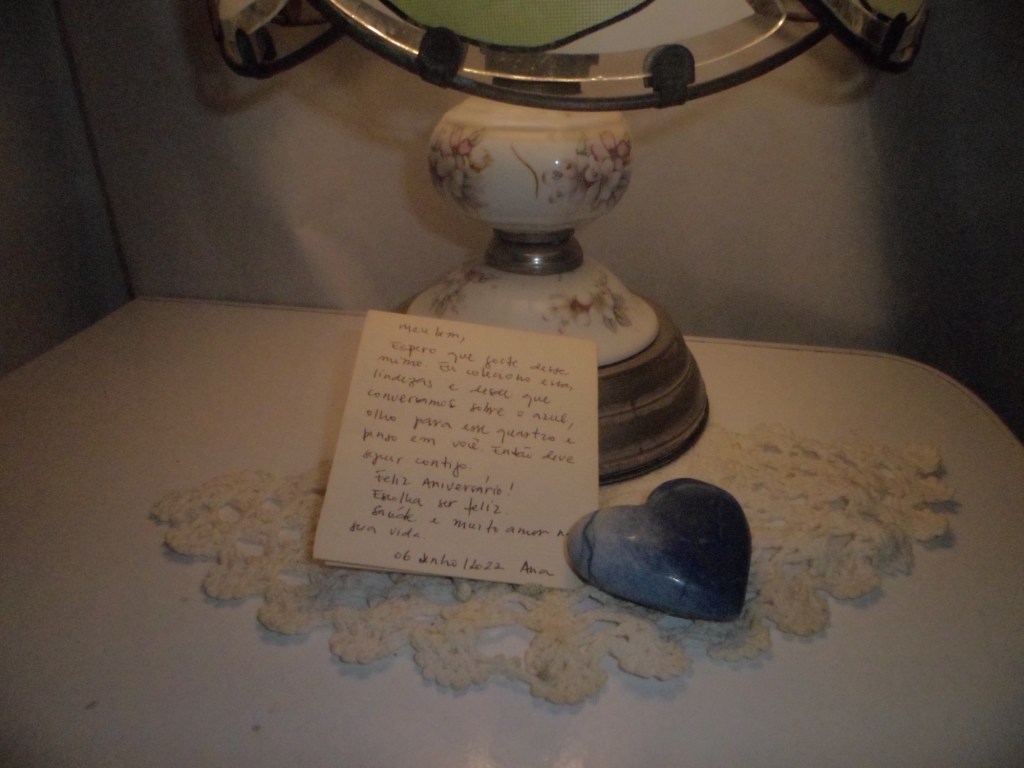 meu bem,
Espero que goste desse
mimo. Eu coleciono essas
lindezas e desde que
conversamos sobre o azul,
olho para esse quartzo e
penso em você. Então deve
ficar contigo.
Feliz Aniversário!
Escolha ser feliz.
Saúde e muito amor na
sua vida
06 Junho/2022 Ana